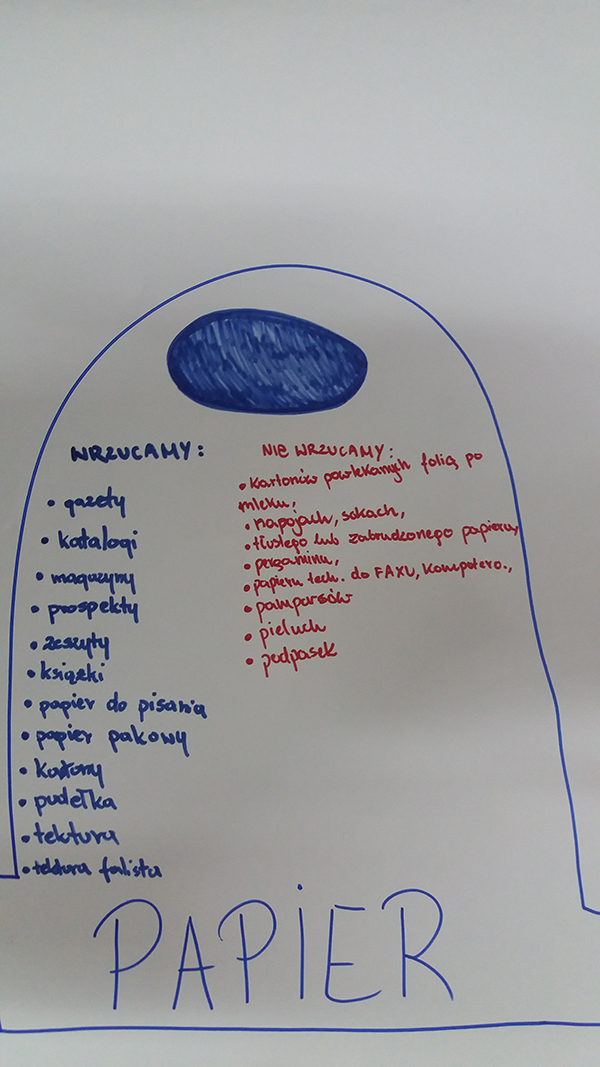 WRZUCAMY:
• gazety
• katalogi
• magazyny
• prospekty
• zeszyty
• książki
• papier do pisania
• papier pakowy
• kartony
• pudełka
• tektura
• tektura falista
NIE WRZUCAMY:
• kartonów powlekanych folią po
mleku,
• napojach, sokach,
• tłustego lub zabrudzonego papieru,
• pergaminu,
• papieru tech. do FAXU, komputero.,
• pampersów
• pieluch
• podpasek
PAPIER